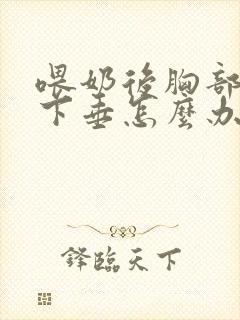 喂奶後胸部
下垂怎麼办
鋒臨天下